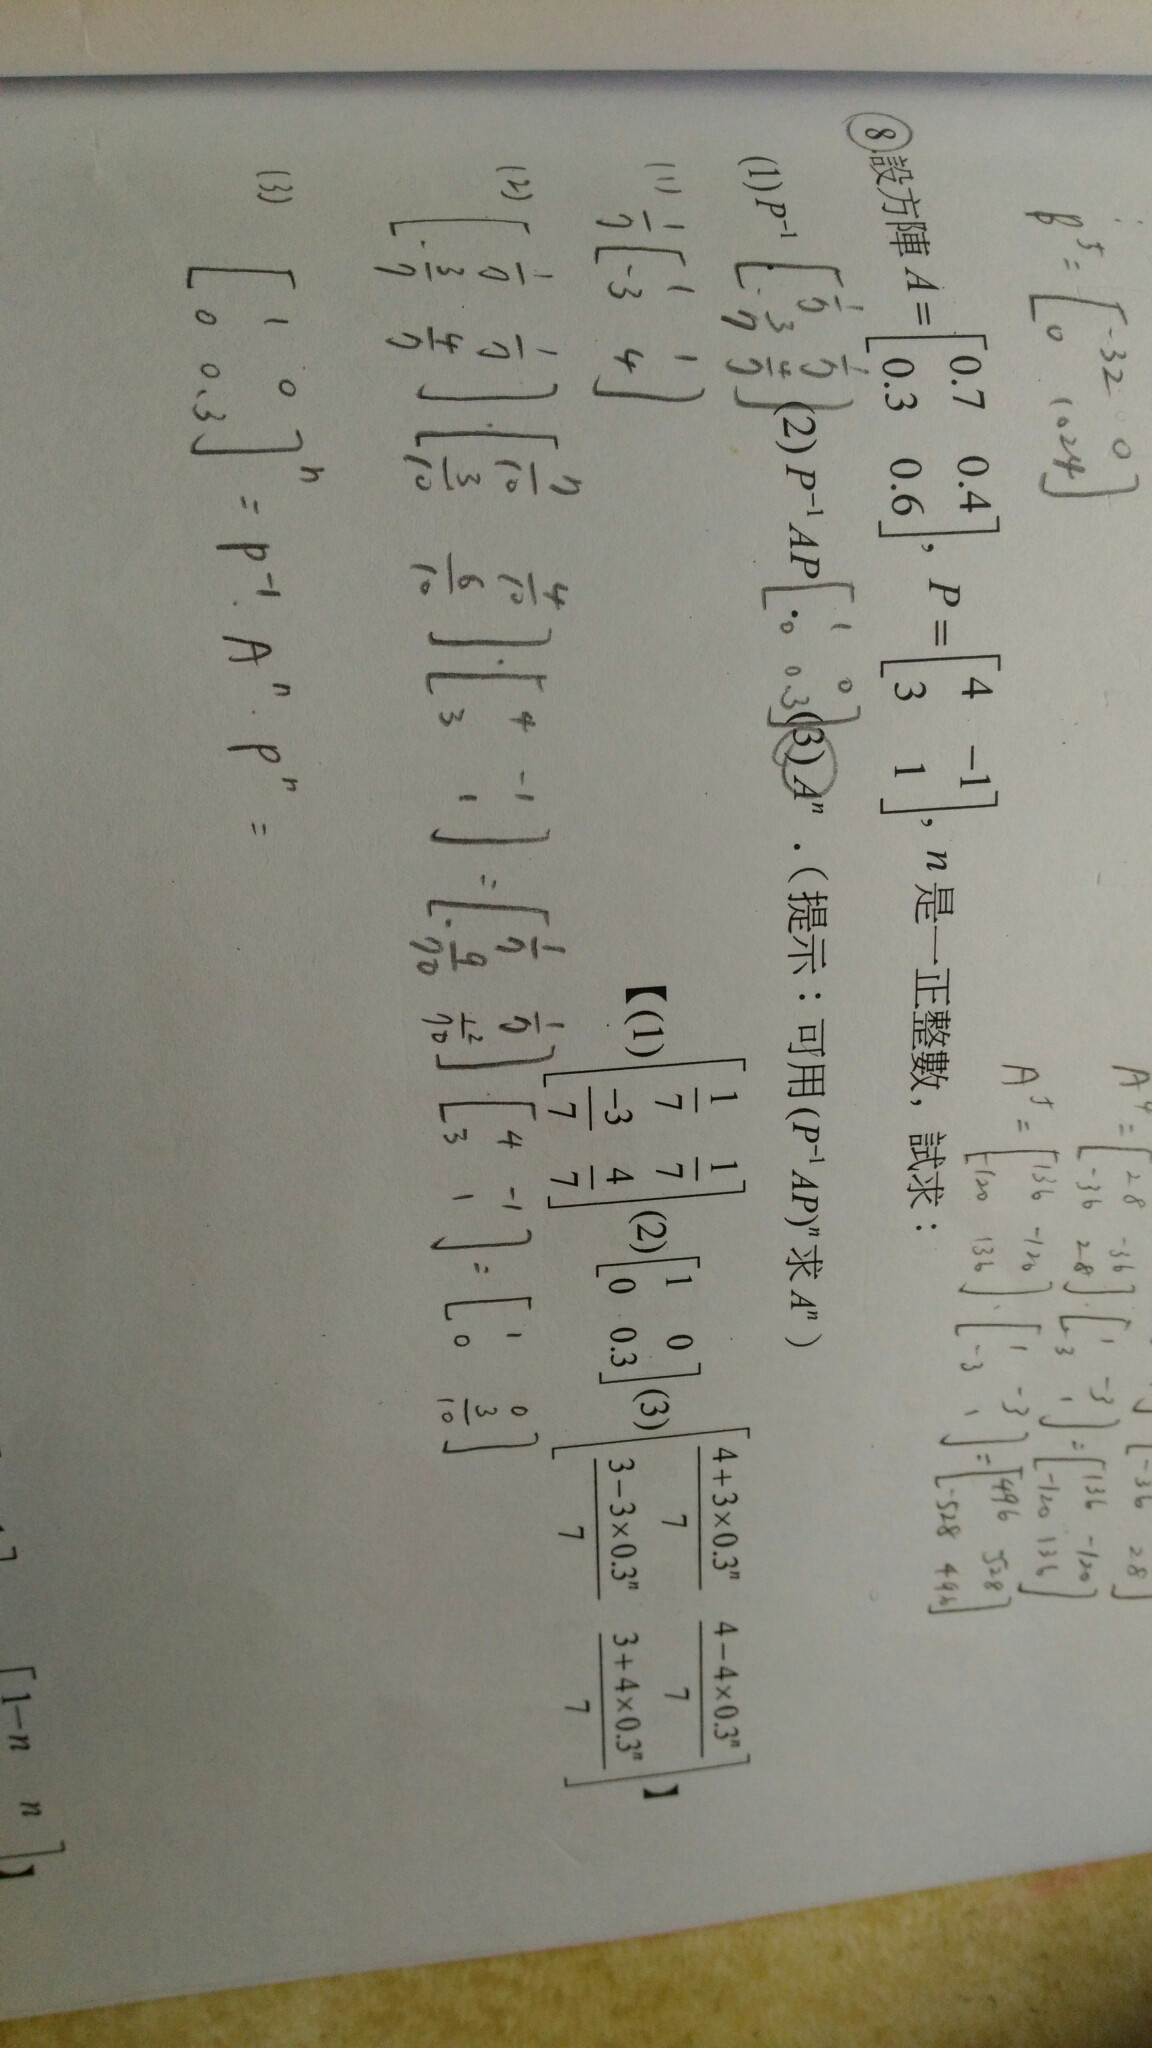 B⁵ = [-32 0
0 1024]
A⁴ = [28 -36
-36 28] · [1 -3
-3 1] = [136 -120
-120 136]
A⁵ = [136 -120
-120 136] · [1 -3
-3 1] = [496 528
-528 496]
⑧設方陣 A = [0.7 0.4
0.3 0.6], P = [4 -1
3 1], n 是一正整數, 試求:
(1) P⁻¹ [1/7 1/7
-3/7 4/7] (2) P⁻¹AP [1 0
0 0.3] (3) Aⁿ .(提示:可用(P⁻¹AP)ⁿ求 Aⁿ)
【(1) [1/7 1/7
-3/7 4/7] (2) [1 0
0 0.3] (3) [(4+3×0.3ⁿ)/7 (4-4×0.3ⁿ)/7
(3-3×0.3ⁿ)/7 (3+4×0.3ⁿ)/7]】
(1) 1/7 [1 1
-3 4]
(2) [1/7 1/7
-3/7 4/7] · [7/10 4/10
3/10 6/10] · [4 -1
3 1] = [1/7 1/7
-9/70 12/70] [4 -1
3 1] = [1 0
0 3/10]
(3) [1 0
0 0.3]ⁿ = P⁻¹ · Aⁿ · Pⁿ =
[1-n n
】